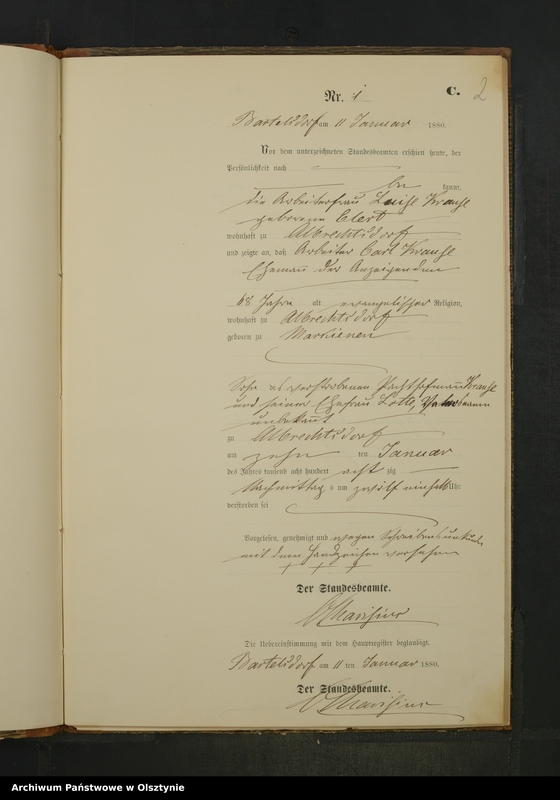 C. 2
Nr. 1
Bartelsdorf am 11 Januar 1880.
Vor dem unterzeichneten Standesbeamten erschien heute, der
Persönlichkeit nach
be kannt,
die Arbeiterfrau Luise Krause
geborene Elert
wohnhaft zu Albrechtsdorf
und zeigte an, daß Arbeiter Carl Krause
Ehemann der Anzeigenden
68 Jahre alt evangelischer Religion,
wohnhaft zu Albrechtsdorf
geboren zu Markienen
Sohn des verstorbenen Krause
und seiner Ehefrau Lotte,
unbekannt
zu Albrechtsdorf
am zehn ten Januar
des Jahres tausend acht hundert acht zig
Nachmittag s um zwölf einhalb Uhr
verstorben sei
Vorgelesen, genehmigt und wegen Schreibensunkunde
mit dem Handzeichen versehen
+ + +
Der Standesbeamte.
Die Uebereinstimmung mit dem Hauptregister beglaubigt.
Bartelsdorf am 11 ten Januar 1880.
Der Standesbeamte.
Archiwum Państwowe w Olsztynie